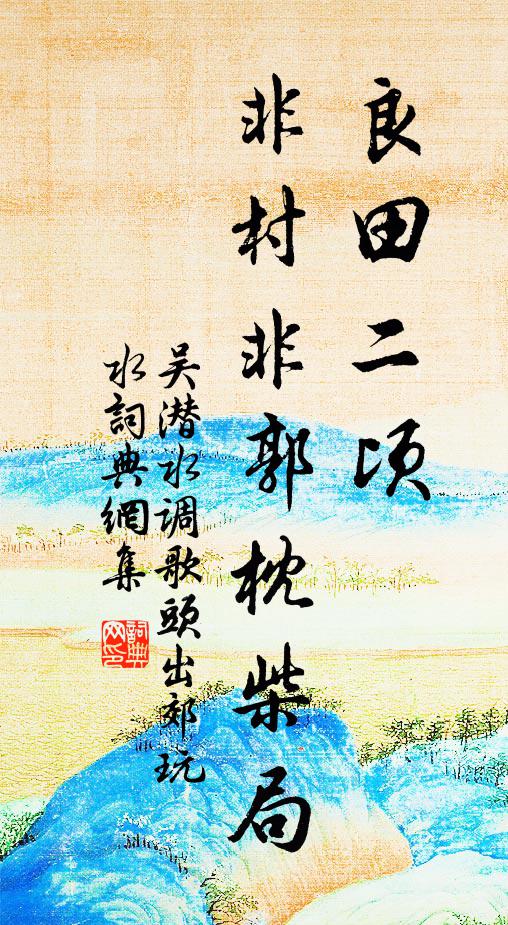 良田二顷
非村非郭枕柴局
吴潜水调歌頭出郊玩
水詞典網集
詞典
网印